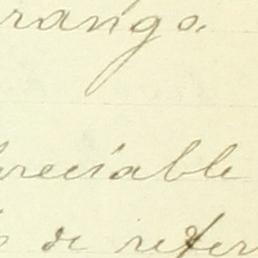 rango.
preciable
de refer